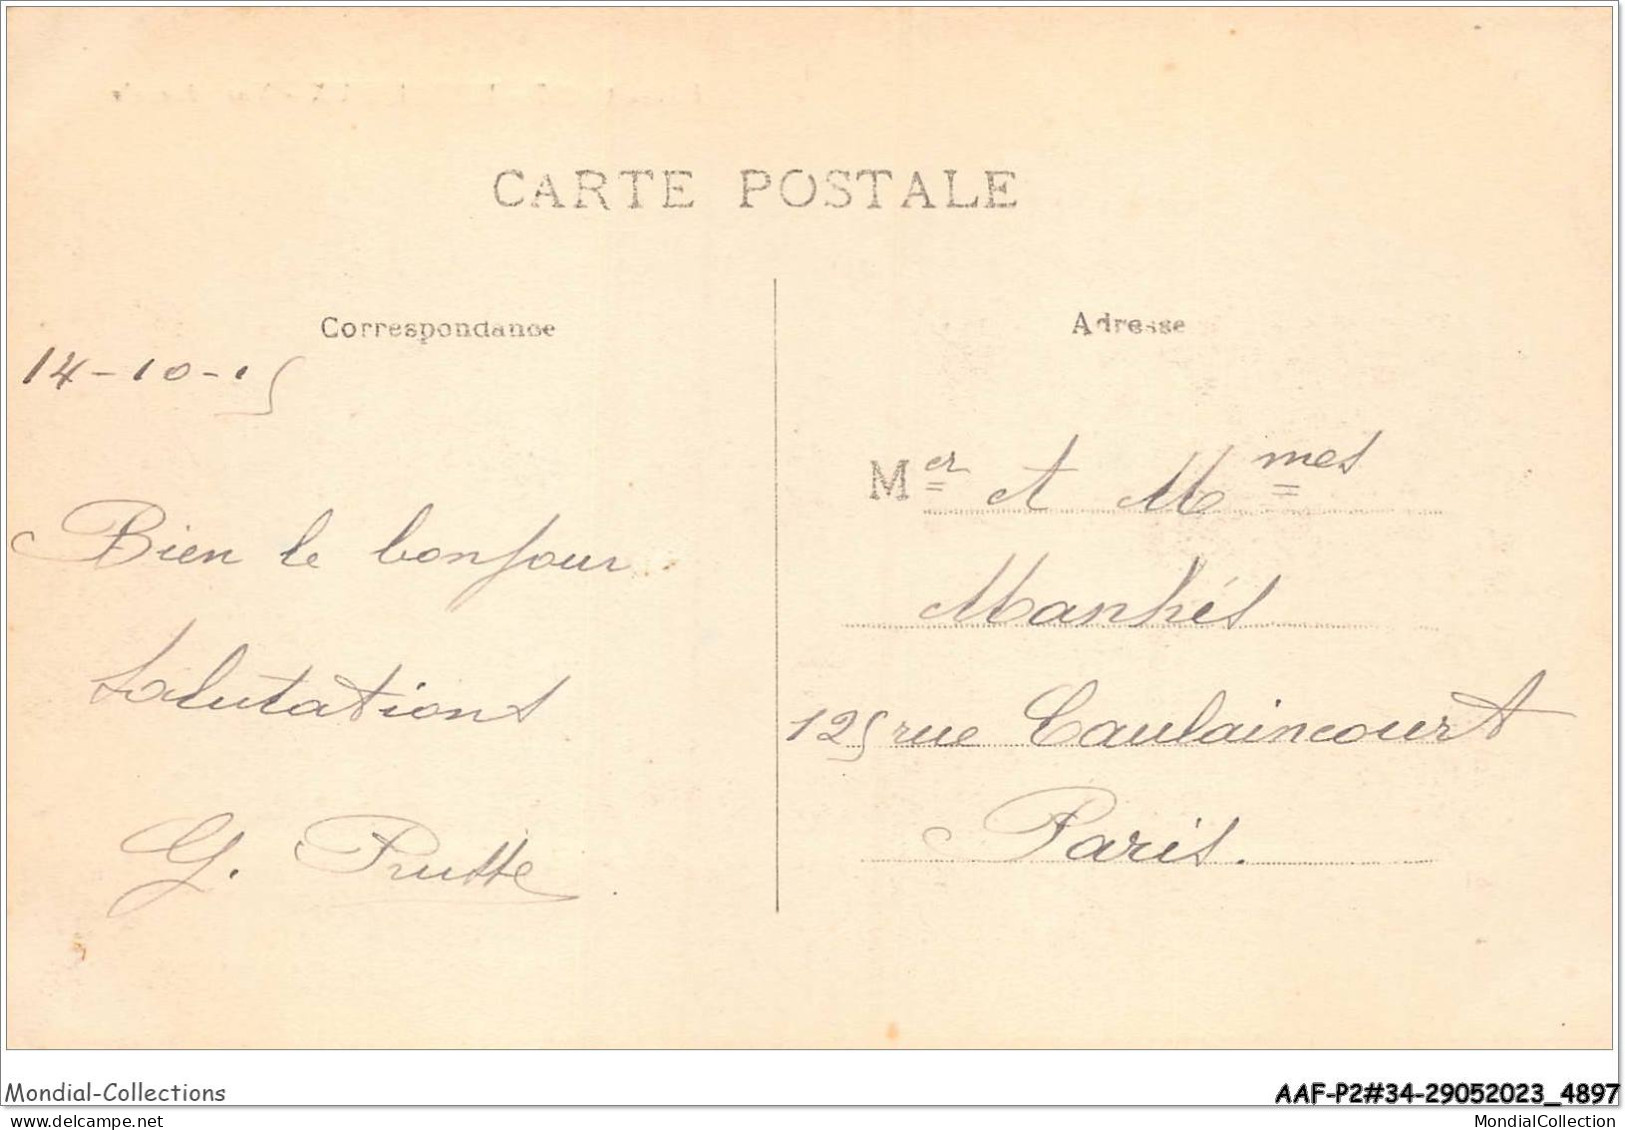 CARTE POSTALE
Correspondance
14-10-15
Bien le bonjour
Salutations
G. Prutte
Adresse
Mer et Mmes
Manhés
125 rue Caulaincourt
Paris.
Mondial-Collections
AAF-P2#34-29052023_4897
www.delcampe.net
MondialCollection